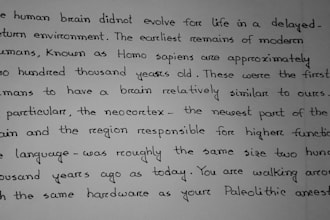 e human brain didnot evolve for life in a delayed-
eturn environment. The earliest remains of modern
umans, known as Homo sapiens are approximately
o hundred thousand years old. These were the first
mans to have a brain relatively similar to ours.
particular, the neocortex - the newest part of the
ain and the region responsible for higher function
e language - was roughly the same size two hund
ousand years ago as today. You are walking arou
h the same hardware as your Paleolithic ancest